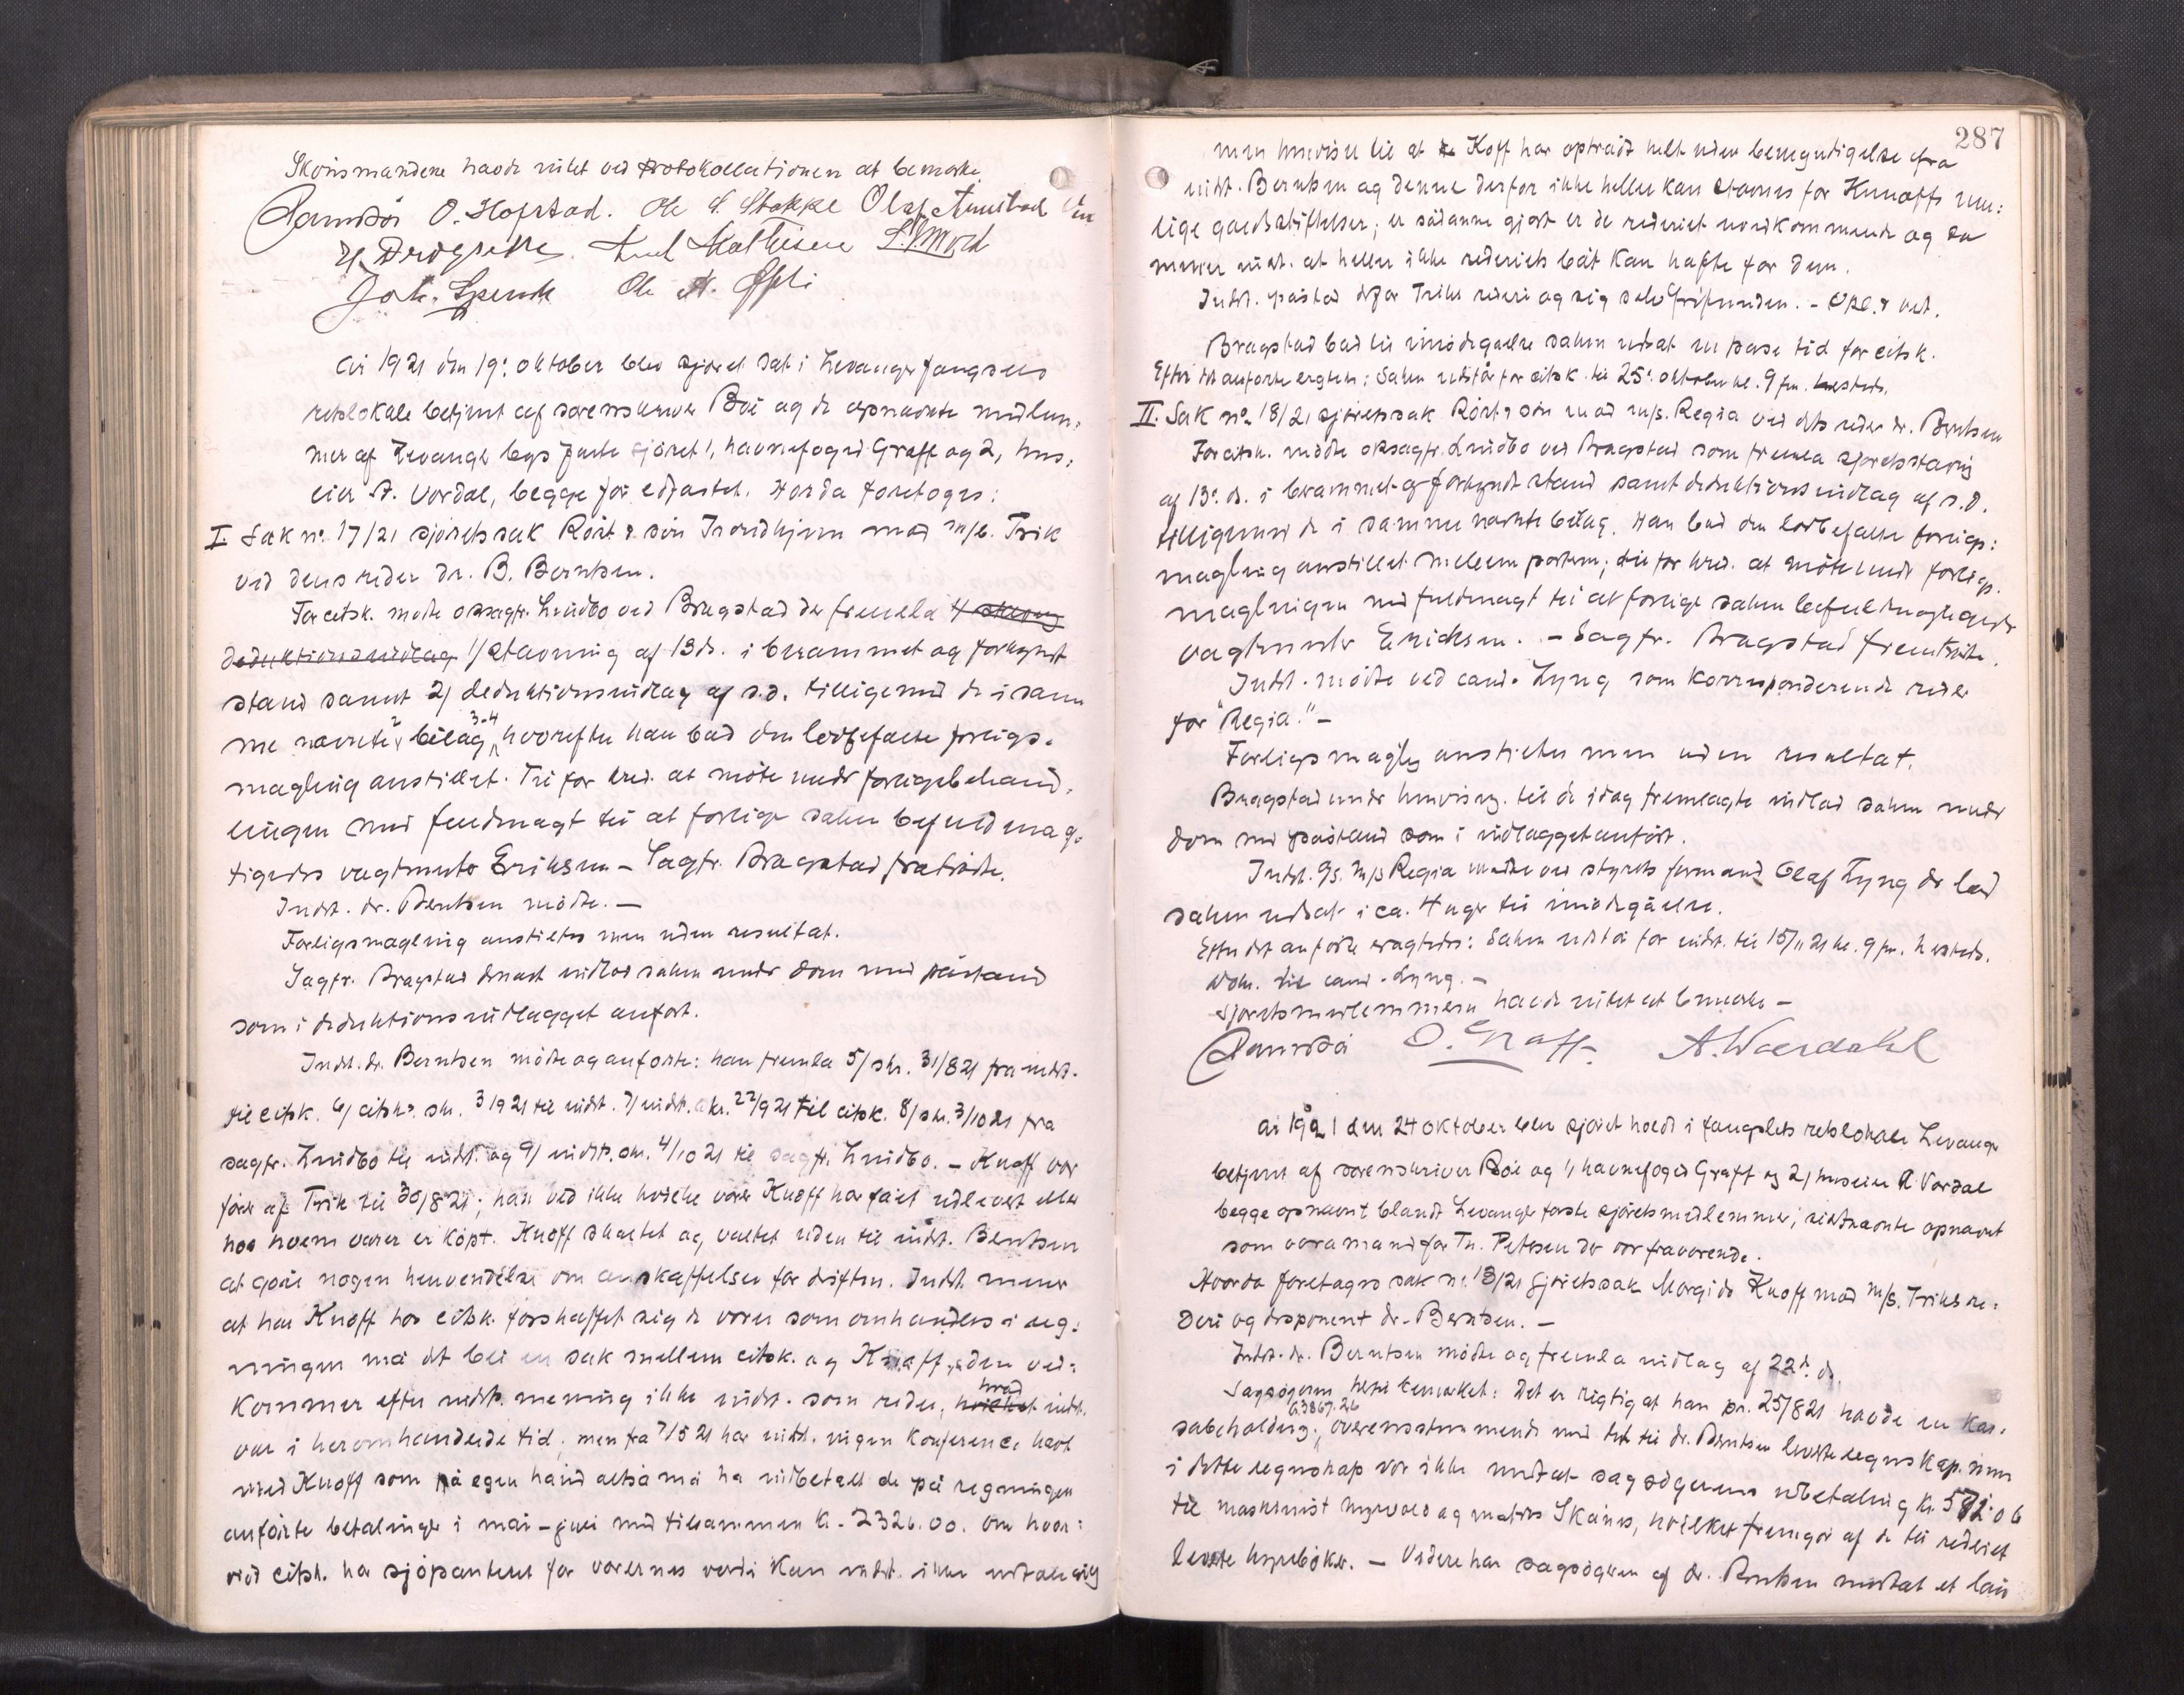 Skönsmændene havde intet ved protokollationen at bemerke.
O. Hofstad. Ole S. Stokke Olaf
Axel Mathisen
Joh. Ole A.
År 1921 den 19. oktober blev sjöret sat i Levanger fængsels
retslokale betjent af sorenskriver Böe og de opnævnte medlem,
mer af Levanger bys faste sjöret 1, havnefoged Graff og 2, hus,
eier A. Vordal, begge för edfæstet. Hvorda foretoges:
I. Sak no. 17/21 sjöretssak Rört & sön Trondhjem mod m/b. Trik
ved dens reder dr. B. Berntsen.
For citsk. mötte o.r.sagfr. Lindbo ved Bragstad der fremla
deduktionsindlæg 1/ stævning af 13 ds. i berammet og forkyndt
stand samt 2/ deduktionsindlæg af s.d. tilligemed de i sam
me nævnte 2 bilag 3-4, hvorefter han bad den lovbefalte forligs-
mægling anstillet. Til for ved. at möte under forligsbehand,
lingen med fuldmagt til at forlige saken befuldmæg-
tigedes vagtmester Eriksen – Sagfr. Bragstad fratrådte.
Indst. dr. Berntsen mötte. –
Forligsmægling anstiltes men uden resultat.
Sagfr. Bragstad dernæst indlod saken under dom med påstand
som i deduktionsindlægget anfört.
Indst. dr. Berntsen mötte og anförte: han fremla 5/ skr. 31/8 21 fra indst.
til citsk. 6/ citsk's skr. 3/9 21 til indst. 7/ indst. skr. 22/9 21 til citsk. 8/ skr. 3/10 21 fra
sagfr. Lindbo til indst. og 9/ indst. skr. 4/10 21 til sagfr. Lindbo. – Knoff var
förer af Trik til 30/8 21; han ved ikke hvilke varer Knoff har fået utlevert eller
hos hvem varer er köpt. Knoff skaltet og valtet uden til indst. Berntsen
at göre nogen henvendelse om anskaffelser for driften. Indst. mener
at har Knoff hos citsk. forskaffet sig de varer som omhandles i reg:
ningen må det bli en sak mellem citsk. og Knoff, den ved:
kommer efter indst. mening ikke indst. som reder, hvad indst.
var i heromhandlede tid; men fra 7/5 21 har indst. ingen konference havt
med Knoff som på egen hånd altså må ha indbetalt de på regningen
anförte betalinger i mai – juli med tilsammen kr. 2326.00. Om hvor:
vidt citsk. har sjöpanteret for varernes verdi kan indst. ikke uttale sig
287
men henviser til at Koff har optrådt helt uden bemyndigelse fra
indst. Berntsen og denne derfor ikke heller kan stævnes for Knoffs
lige gældsstiftelser; er sådanne gjort er de rederiet uvedkommende og da
mener indst. at heller ikke rederiets båt kan hæfte for dem.
Indst. påstod derfor Triks rederi og sig selv frifunden. – Opl. & vet.
Bragstad bad til imödegåelse saken utsat en passe tid for citsk.
Efter det anförte eragtedes: Saken utstår for citsk. til 25. oktober kl. 9 fm. hersteds.
II. Sak no. 18/21 sjöretssak Rört & sön mod m/s. Regia ved dets reder dr. Berntsen
For citsk. mödte o.r.sagfr. Lindbo ved Bragstad som fremla sjöretsstævning
af 13. ds. i berammet og forkyndt stand samt deduktionsindlæg af s.d.
tilligemed de i samme nævnte bilag. Han bad den lovbefalte forligs:
mægling anstillet mellem parterne; til for ved. at möte under forligs-
mæglingen med fuldmagt til at forlige saken befuldmægtigedes
vagtmester Erichsen. – Sagfr. Bragstad fratrådte.
Indst. mödte ved cand. Lyng som korresponderende reder
for "Regia." –
Forligsmægling anstiltes men uden resultat.
Bragstad under henvisng. til de idag fremlagte indlod saken under
dom med påstand som i indlægget anfört.
Indst. m/s Regia mödte ved styrets formand Olaf Lyng der bad
saken utsat i ca. 4 uger til imödegåelse.
Efter det anförte eragtedes: Saken utstår for indst. til 15/11 21 kl. 9 fm. hersteds.
Vok. til cand. Lyng. –
Sjöretsmedlemmerne havde intet at bemerke –
O. Graff. A. Woerdahl
År 1921 den 24 oktober blev sjöret holdt i fængslets retslokale Levanger
betjent af sorenskriver Böe og 1, havnefoged Graff og 2/ huseier A. Vordal
begge opnævnt blandt Levanger faste sjöretsmedlemmer; sidstnævnte opnævnt
som varamand for Th. Petersen der var fraværende.
Hvorda foretages sak nr. 13/21 Sjöretssak Morgido Knoff mod m/s. Triks re:
deri og disponent dr. Berntsen. –
Indst. dr. Berntsen mödte og fremla indlæg af 22d. ds.
Sagsögeren hertil bemerket: Det er rigtig at han pr. 25/8 21 havde en kas.
sabeholdng. kr. 3867.26 overensstemmende med det til dr. Berntsen leverte regnskap. men
i dette regnskap var ikke medtat sagsögerens utbetaling kr. 582.06
til maskinist Myrvold og matros Skånes, hvilket fremgår af de til rederiet
leverte hyreböker. – Videre har sagsögeren af dr. Berntsen mottat et lån